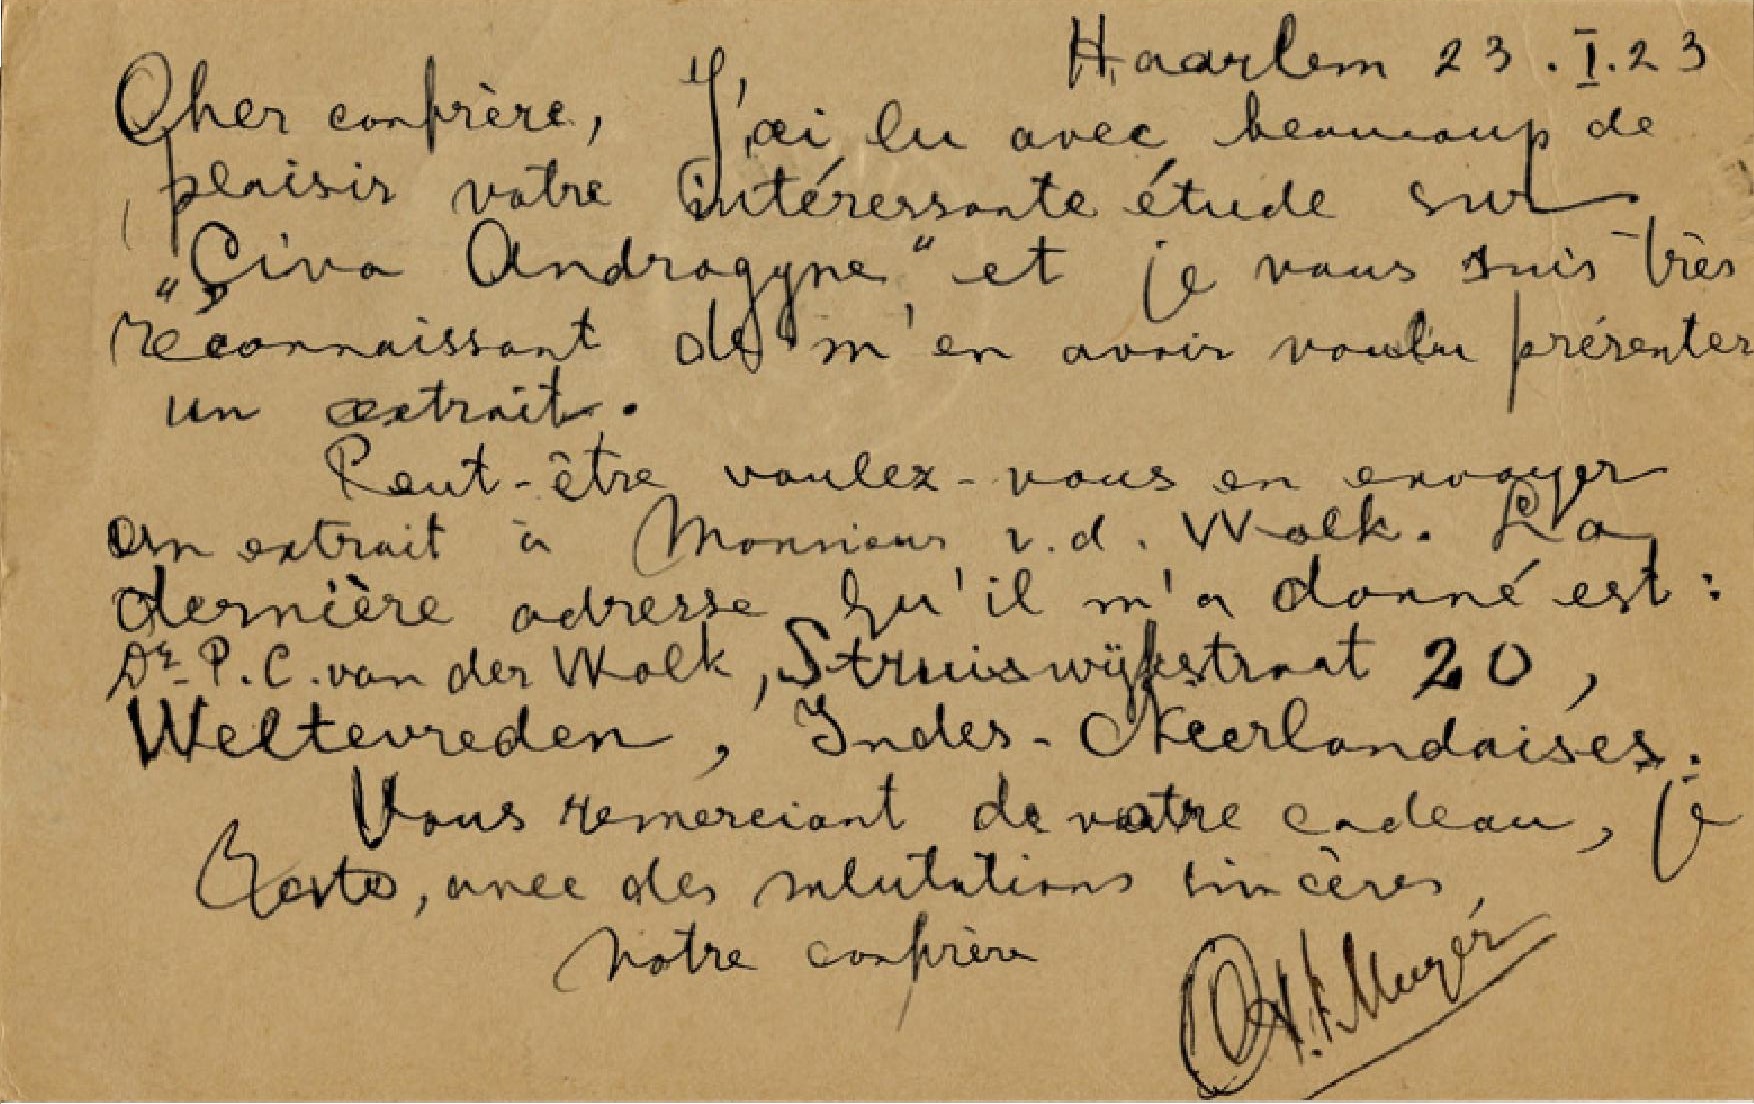 Haarlem 23.I.23
Cher confrère, J'ai lu avec beaucoup de
plaisir votre intéressante étude sur
„Çiva Androgyne“ et je vous suis très
reconnaissant de m'en avoir voulu présenter
un extrait.
Peut-être voulez-vous en envoyer
un extrait à Monsieur v.d. Wolk. La
dernière adresse qu'il m'a donné est:
Dr. P.C. van der Wolk, Struiswijkstraat 20,
Weltevreden, Indes-Neerlandaises.
Vous remerciant de votre cadeau, je
reste, avec des salutations sincères,
Votre confrère